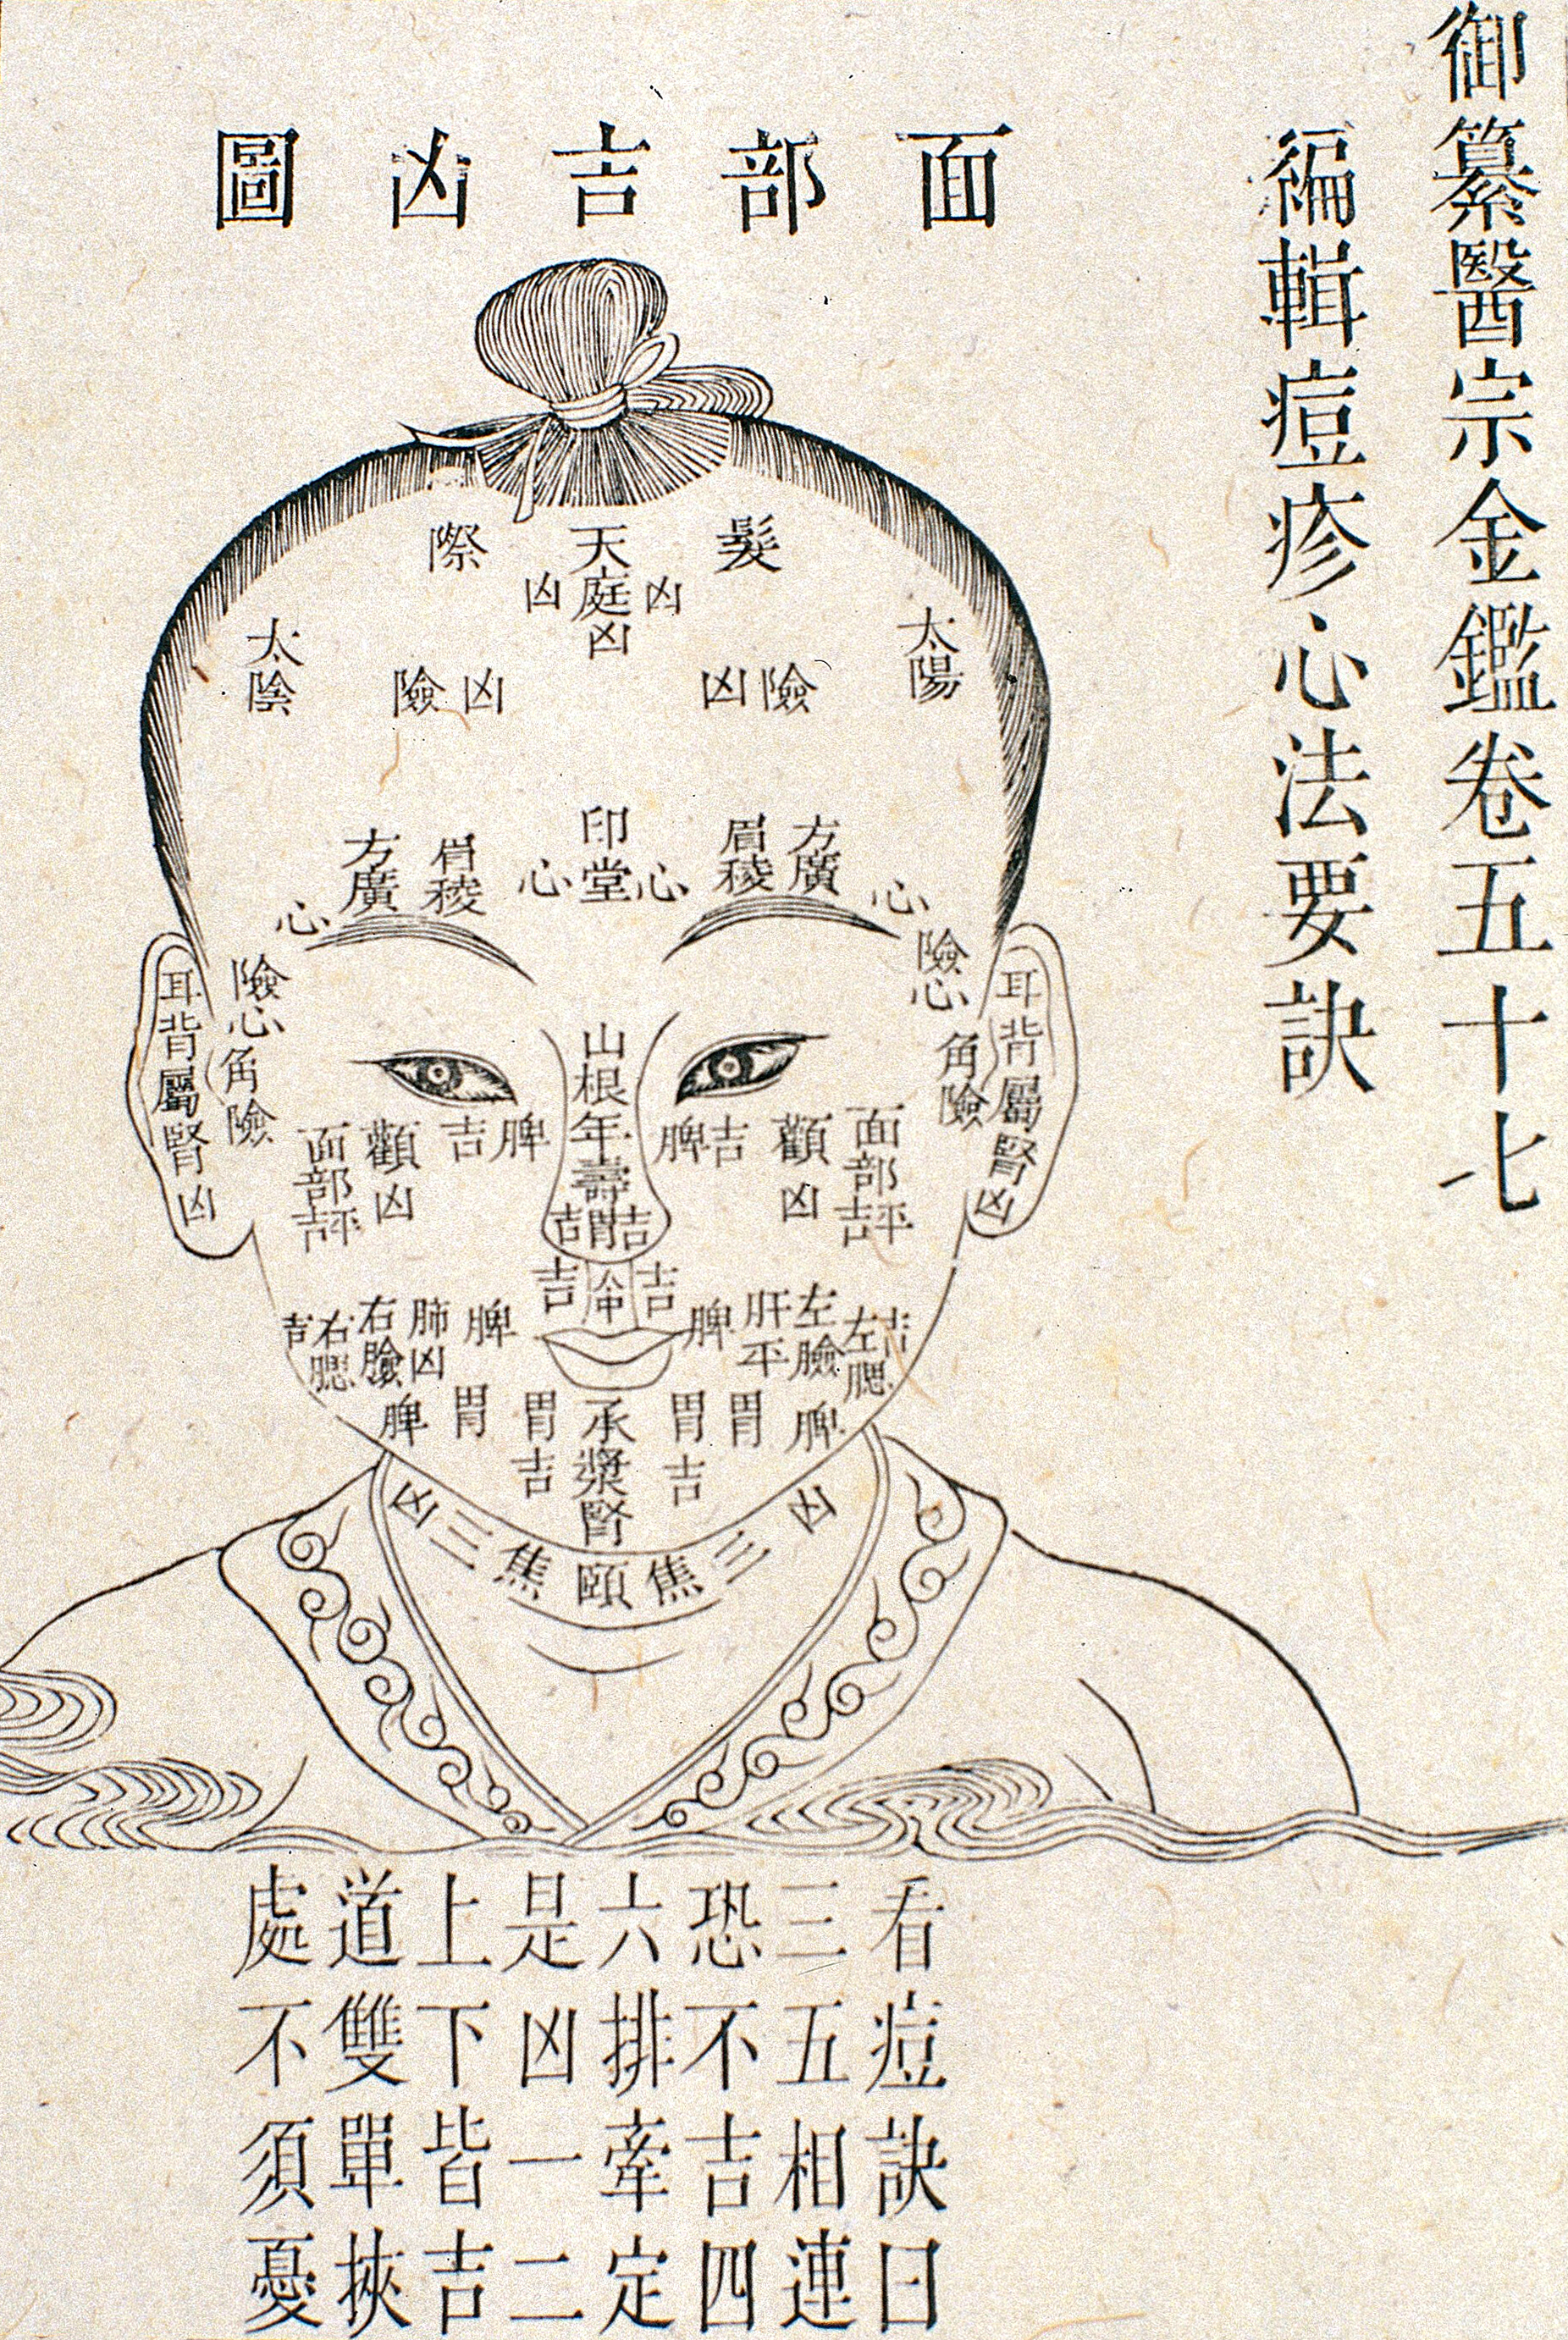 御纂醫宗金鑑卷五十七
編輯痘疹心法要訣
面部吉凶圖
髮際
天庭
凶 凶
凶
太陽
太陰
凶險
險凶
印堂
心 心
眉稜
方廣
心
眉稜
方廣
心
險心
角險
耳背屬腎凶
險心
角險
耳背屬腎凶
山根年壽
吉胃吉
脾吉
顴凶
面部
吉平
吉脾
顴凶
面部
吉平
吉 吉
脾
肝平
左臉
左腮
吉
脾
肺凶
右臉
右腮
吉
承漿腎
胃吉
胃
脾
胃吉
胃
脾
頤
焦三凶
凶三焦
看痘訣曰
三五相連
恐不吉四
六排牽定
是凶一二
上下皆吉
道雙單挾
處不須憂